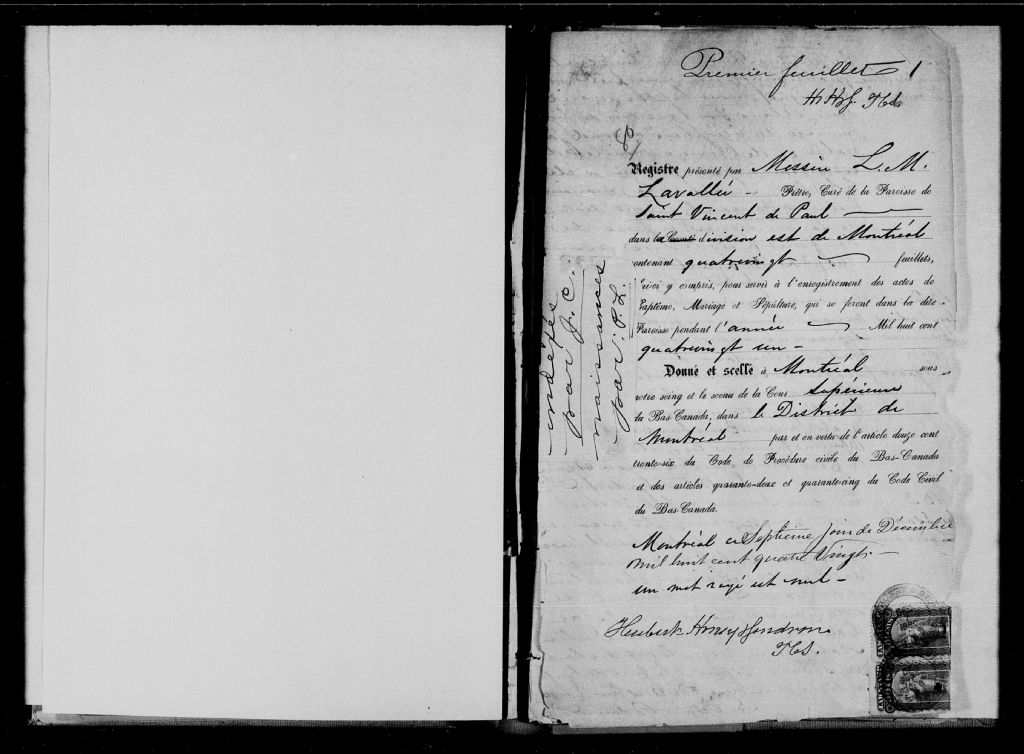 Premier feuillet 1
HHG. Tcl.
Registre présenté par Messire L. M.
Lavallée - Prêtre, Curé de la Paroisse de
Saint Vincent de Paul
dans la Comté division est de Montréal
ontenant quatrevingt feuillets,
ceci y compris, pour servir à l'enregistrement des actes de
Baptême, Mariage et Sépulture, qui se feront dans la dite
Paroisse pendant l'année Mil huit cent
quatrevingt un -
Donné et scellé à Montréal sous
notre seing et le sceau de la Cour Supérieure
du Bas-Canada, dans le District de
Montréal par et en vertu de l'article douze cent
trente-six du Code de Procédure civile du Bas-Canada
et des articles quarante-deux et quarante-cinq du Code Civil
du Bas-Canada.
Montréal ce Septieme jour de Décembre
mil huit cent quatre Vingt -
un mot rayé est nul -
Hubert Honey Gendron
indexés
par J. C.
naissances
par P. L.